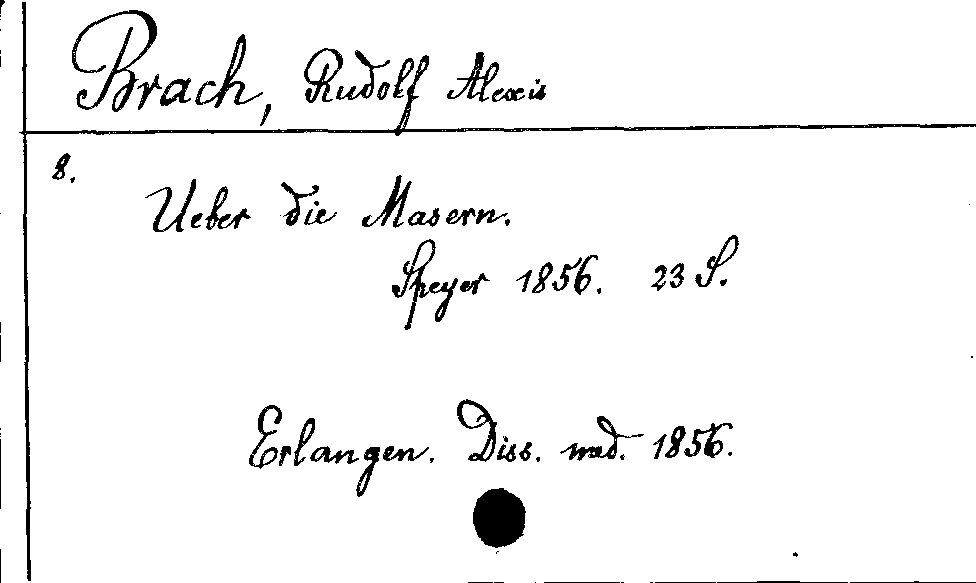 Brach, Rudolf Alexis
8.
Ueber die Masern.
Speyer 1856. 23 S.
Erlangen. Diss. med. 1856.